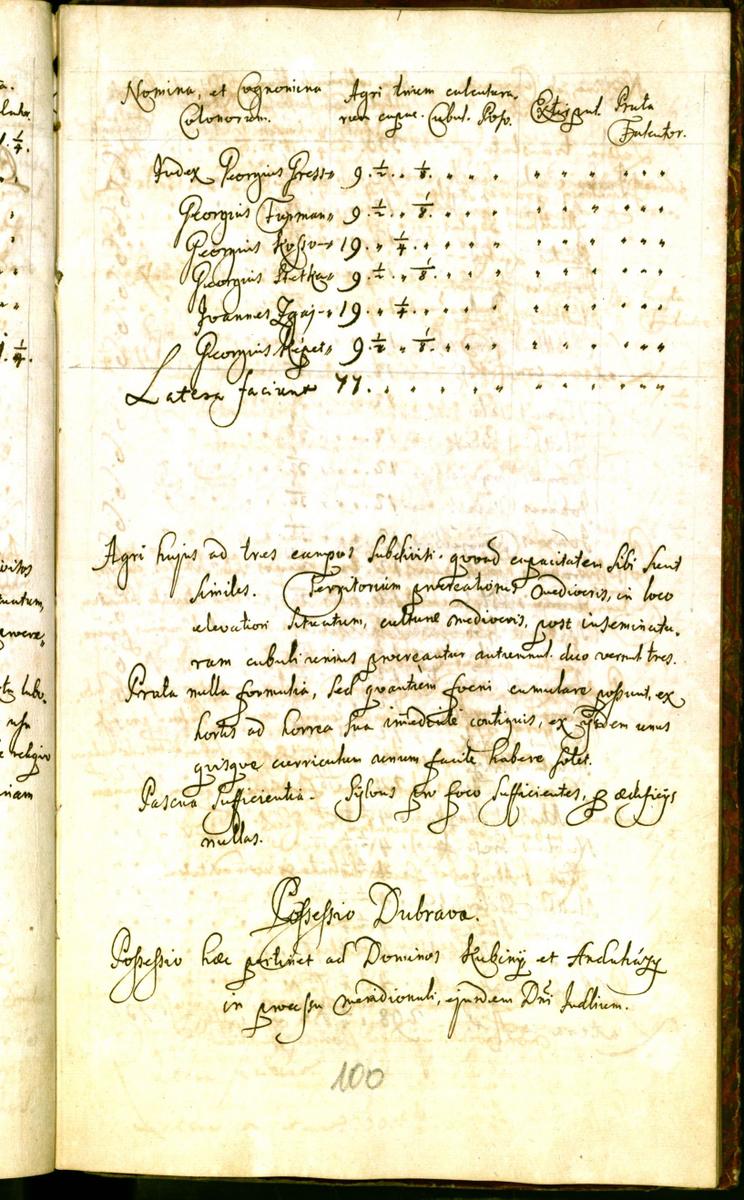 Nomina, et Cognomina Agri trium calcatura-
Colonorum. rum capac. Cubul. Poso. Extirpat. Prata Falcator.
Judex Georgius Gress 9. 1/2 1/8
Georgius Furman 9. 1/2 1/8
Georgius Kosso 19. 1/4
Georgius Stetka 9. 1/2 1/8
Joannes Zgaj 19. 1/4
Georgius Képet 9 1/2 1/8
Latera faciunt 77.
Agri hujus ad tres campos subdivisi quoad capacitatem sibi sunt
similes. Territorium procreationis mediocris, in loco
elevatiori situatum, culturæ mediocris, post inseminatu-
ram cubuli unius procreantur autumnal. duo vernal tres.
Prata nulla formalia, sed quantum foeni cumulare possunt, ex
hortis ad horrea sua im̄ediaté contiguis, ex ijsdem unus
quisque curriculum unum facile habere potest.
Pascua sufficientia. Sylvas pro foco sufficientes, p ædificijs
nullas.
Possessio Dubrava.
Possessio hæc pertinet ad Dominos Kubinÿ et Andaházÿ
in processu meridionali, ejusdem Dn̄i Judlium.
100